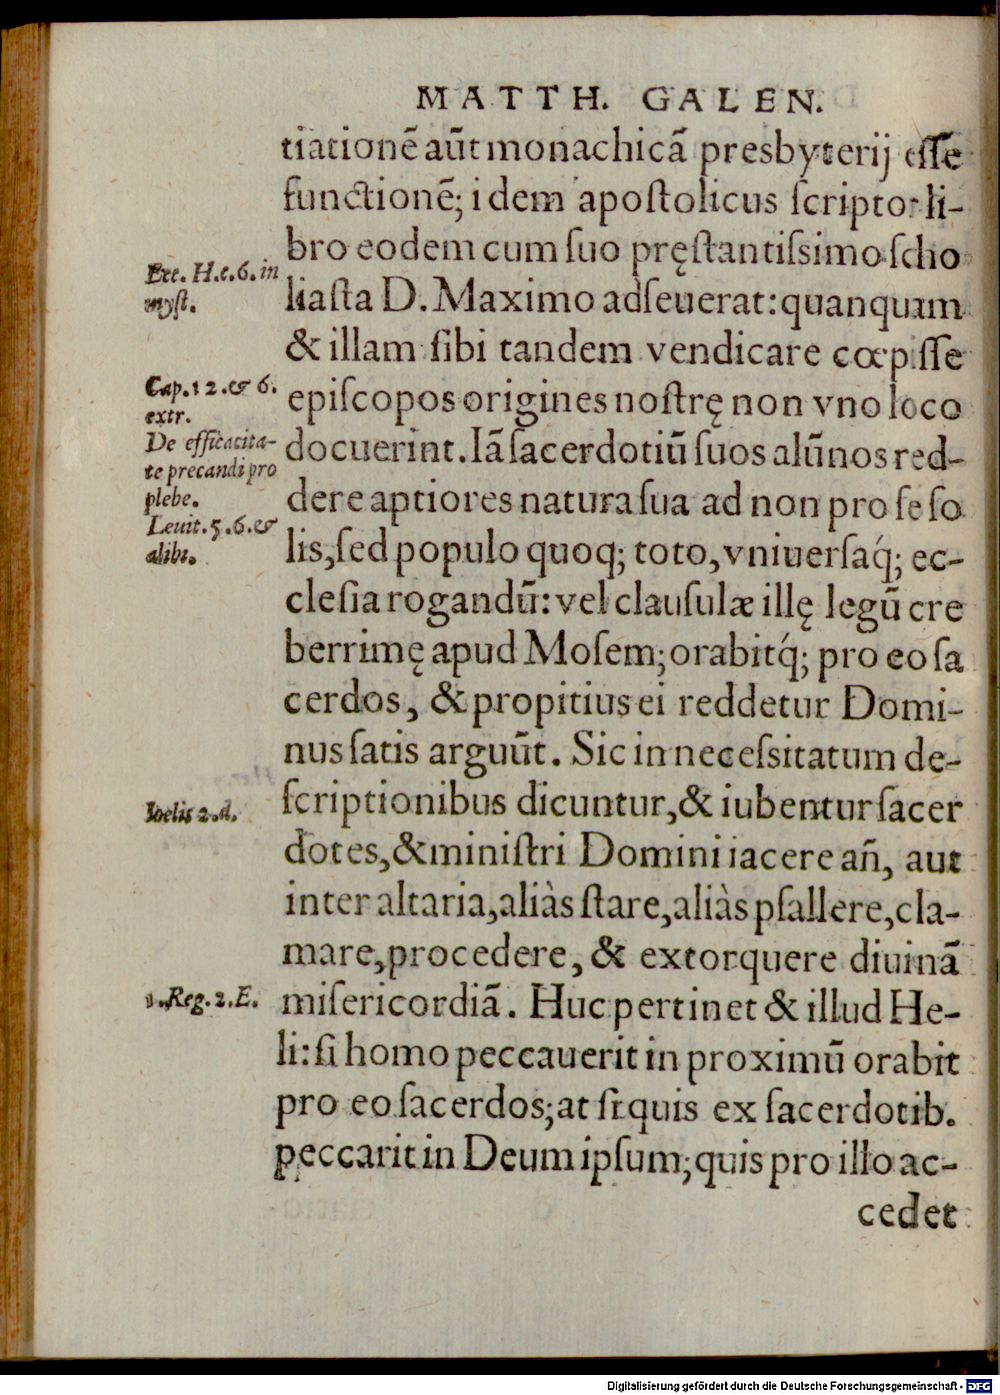 MATTH. GALEN.
tiationē aūt monachicā presbyterij eſſe
functionē; idem apoſtolicus ſcriptor li-
bro eodem cum ſuo pręſtantiſsimo ſcho
Ecc. H.c.6. in
myſt.
liaſta D. Maximo adſeuerat: quanquam
& illam ſibi tandem vendicare cœpiſſe
Cap. 12. & 6.
extr.
epiſcopos origines noſtrę non vno loco
De efficacita-
te precandi pro
plebe.
docuerint. Iā ſacerdotiū ſuos alūnos red-
dere aptiores natura ſua ad non pro ſe ſo
Leuit. 5. 6. &
alibi.
lis, ſed populo quoq; toto, vniuerſaq́; ec-
cleſia rogandū: vel clauſulæ illę legū cre
berrimę apud Moſem; orabitq́; pro eo ſa
cerdos, & propitius ei reddetur Domi-
nus ſatis arguūt. Sic in neceſsitatum de-
Ioelis 2. d.
ſcriptionibus dicuntur, & iubentur ſacer
dotes, & miniſtri Domini iacere añ, aut
inter altaria, aliàs ſtare, aliàs pſallere, cla-
mare, procedere, & extorquere diuinā
1. Reg. 2. E.
miſericordiā. Huc pertinet & illud He-
li: ſi homo peccauerit in proximū orabit
pro eo ſacerdos; at ſi quis ex ſacerdotib.
peccarit in Deum ipſum; quis pro illo ac-
cedet
Digitalisierung gefördert durch die Deutsche Forschungsgemeinschaft - DFG